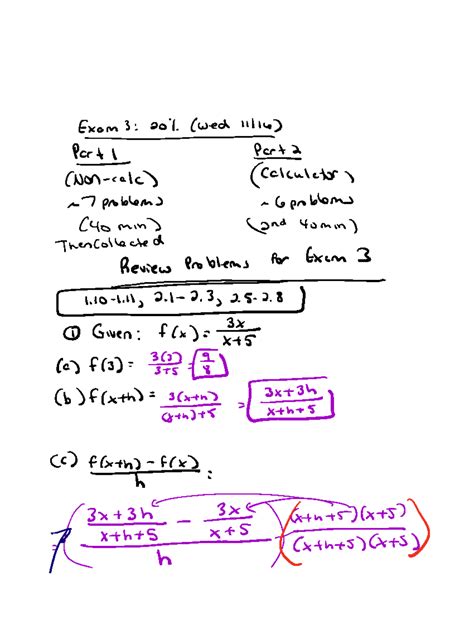 Exam 3: 20% (Wed 11/16)
Part 1 Part 2
(Non-calc) (Calculator)
~7 problems ~6 problems
(40 min) (2nd 40 min)
Then Collected
Review Problems for Exam 3
1.10-1.11, 2.1-2.3, 2.5-2.8
① Given: f(x) = 3x/(x+5)
(a) f(3) = 3(3)/(3+5) = 9/8
(b) f(x+h) = 3(x+h)/((x+h)+5) = (3x+3h)/(x+h+5)
(c) (f(x+h)-f(x))/h :
= ((3x+3h)/(x+h+5) - 3x/(x+5))/h · ((x+h+5)(x+5))/((x+h+5)(x+5))